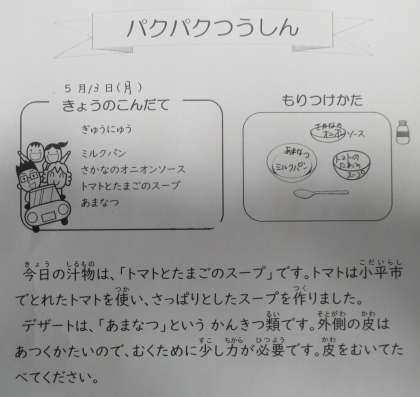 パクパクつうしん
5月13日(月)
きょうのこんだて
ぎゅうにゅう
ミルクパン
さかなのオニオンソース
トマトとたまごのスープ
あまなつ
もりつけかた
さかなの
オニオンソース
あまなつ
ミルクパン
トマトと
たまごの
スープ
きょう しるもの こだいらし
今日の汁物は、「トマトとたまごのスープ」です。トマトは小平市
つか つく
でとれたトマトを使い、さっぱりとしたスープを作りました。
るい そとがわ かわ
デザートは、「あまなつ」という かんきつ類です。外側の皮は
すこ ちから ひつよう かわ
あつくかたいので、むくために少し力が必要です。皮をむいてた
べてください。